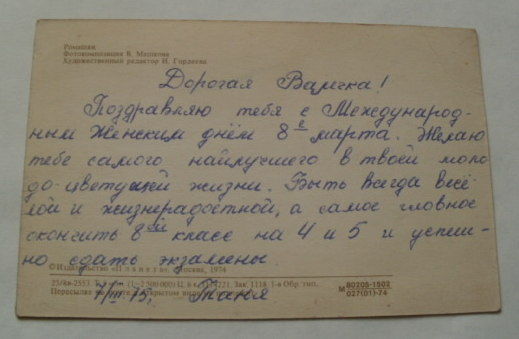 Ромашки
Фотокомпозиция В. Машкова
Художественный редактор И. Гордеева
Дорогая Валечка!
Поздравляю тебя с Международ-
ным Женским днём 8 е марта. Желаю
тебе самого найлучшего в твоей моло
до-цветущей жизни. Быть всегда весё
лой и жизнерадостной, а самое главное
окончить 8 ой класс на 4 и 5 и успеш-
но сдать экзамены.
© Издательство «Планета». Москва, 1974
2 500 000) Зак. 1118. 1-я Обр. тип.
М 80205-1502
027(01)-74
Пересылать открытом
1/III 75, Таня